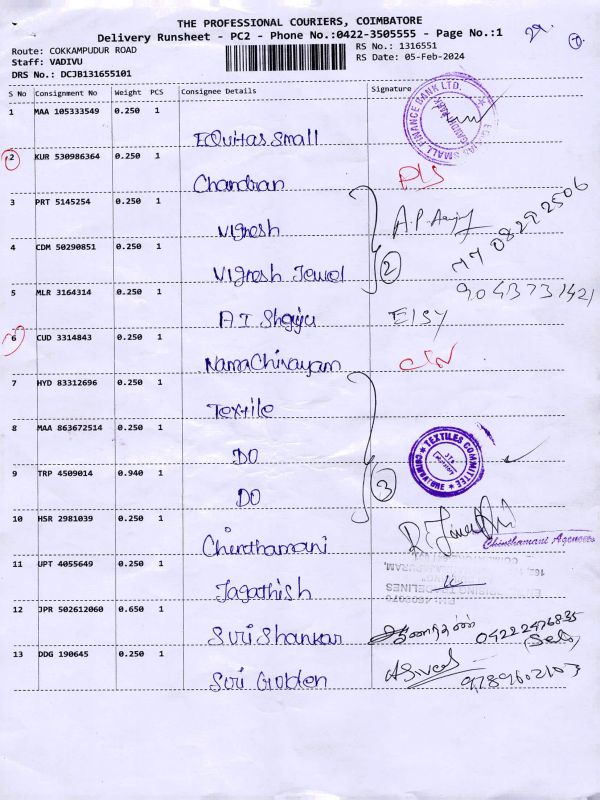 THE PROFESSIONAL COURIERS, COIMBATORE
Delivery Runsheet - PC2 - Phone No.:0422-3505555 - Page No.:1
Route: COKKAMPUDUR ROAD
Staff: VADIVU
DRS No.: DCJB131655101
RS No.: 1316551
RS Date: 05-Feb-2024
29.
S No Consignment No Weight PCS Consignee Details Signature
1 MAA 105333549 0.250 1 EQuitas Small
EQUITAS SMALL FINANCE BANK LTD.
2 KUR 530986364 0.250 1 Chandran
3 PRT 5145254 0.250 1 Vignesh
4 CDM 50290851 0.250 1 Vignesh Jewel 2
5 MLR 3164314 0.250 1 A.T Shaiju
6 CUD 3314843 0.250 1 NamaChivayam
7 HYD 83312696 0.250 1 Textile
8 MAA 863672514 0.250 1 DO
TEXTILES COMMITTEE
9 TRP 4509014 0.940 1 DO 3
10 HSR 2981039 0.250 1 Chinthamani
Chinthamani Agencies
11 UPT 4055649 0.250 1 Jagathish
12 JPR 502612060 0.650 1 Suri Shankar 04222476835
13 DDG 190645 0.250 1 Suri Golden